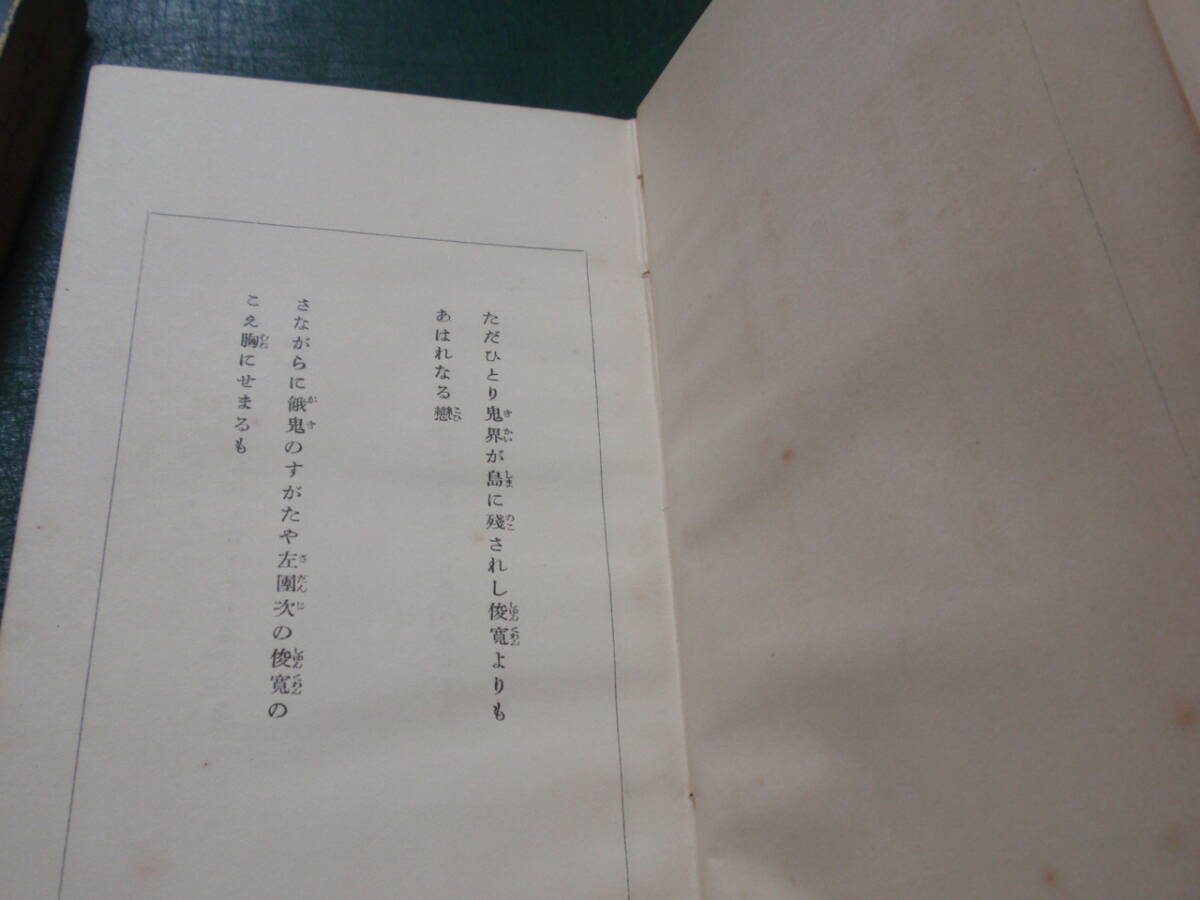 ただひとり鬼界が島に殘されし俊寬よりも
あはれなる戀
さながらに餓鬼のすがたや左團次の俊寬の
こえ胸にせまるも